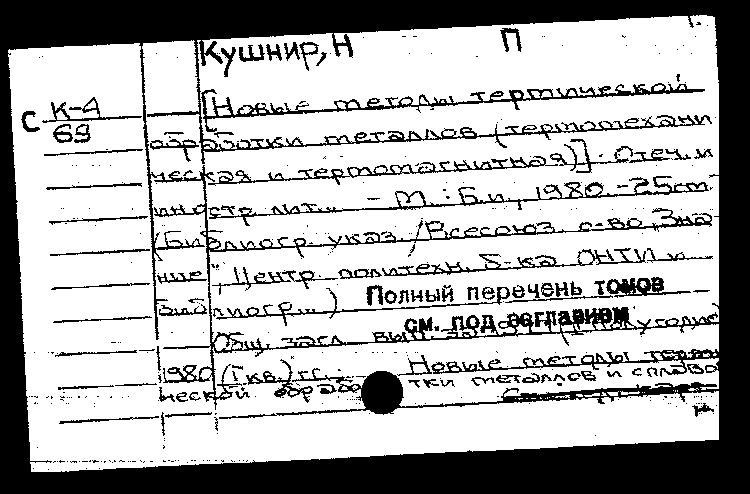 Кушнир, Н П
С К-4
69
[Новые методы термической
обработки металлов (термомехани
ческая и термомагнитная)]. Отеч. и
иностр. лит... - М. : Б.и., 1980. - 25 см.
(Библиогр. указ. / Всесоюз. о-во "Зна-
ние", Центр. политехн. б-ка ОНТИ и
библиогр...)
Полный перечень томов
см. под заглавием
Общ. загл. вып. за полугодие
1980 (I кв.) гг.: Новые методы терми
ческой обработки металлов и сплаво